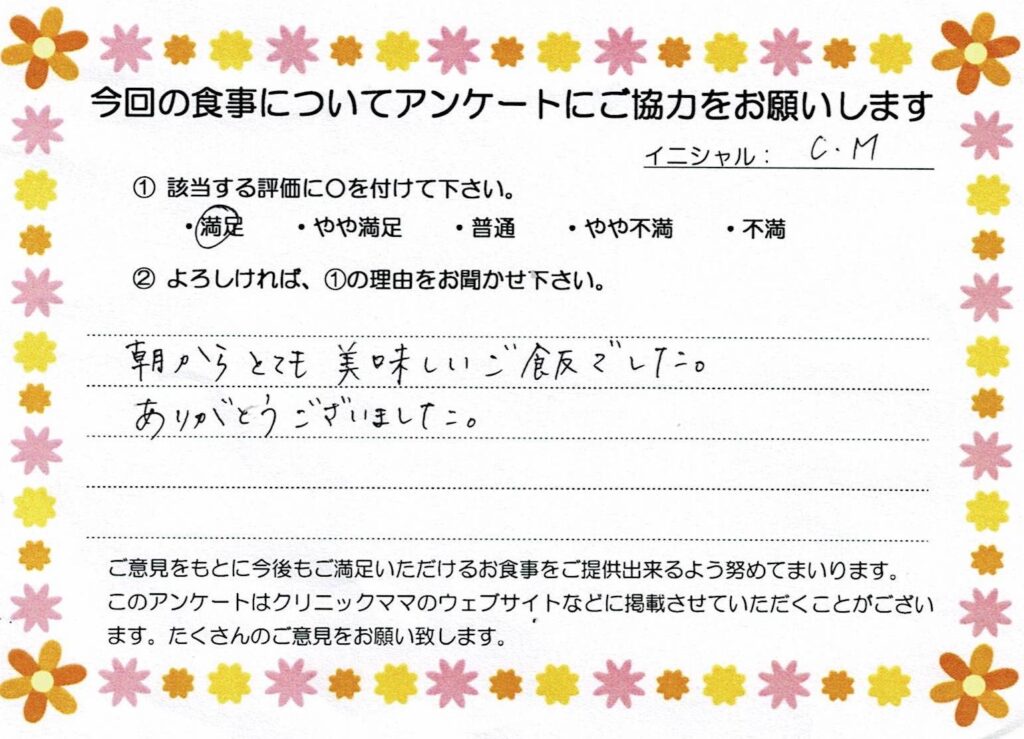 今回の食事についてアンケートにご協力をお願いします
イニシャル: C.M
① 該当する評価に〇を付けて下さい。
・満足 ・やや満足 ・普通 ・やや不満 ・不満
② よろしければ、①の理由をお聞かせ下さい。
朝からとても美味しいご飯でした。
ありがとうございました。
ご意見をもとに今後もご満足いただけるお食事をご提供出来るよう努めてまいります。
このアンケートはクリニックママのウェブサイトなどに掲載させていただくことがござい
ます。たくさんのご意見をお願い致します。